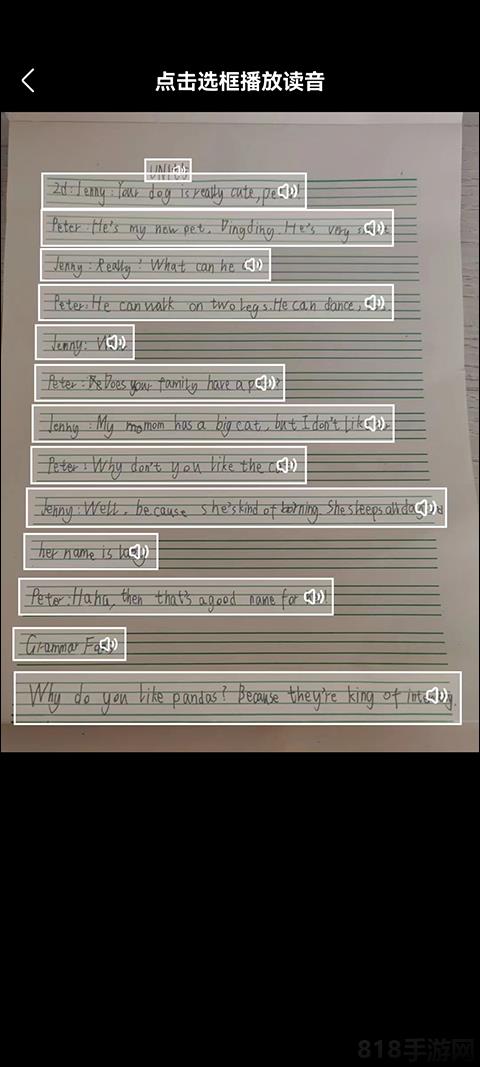 点击选框播放读音
2d: Jenny: Your dog is really cute,
Peter: He's my new pet, Dingding. He's very
Jenny: Really? What can he
Peter: He can walk on two legs. He can dance,
Jenny:
Peter: Does your family have a
Jenny: My momom has a big cat, but I don't
Peter: Why don't you like the
Jenny: Well, because she's kind of She sleeps all day,
her name is
Peter: Haha, then that's a good name for
Grammar
Why do you like pandas? Because they're king of
818手游网